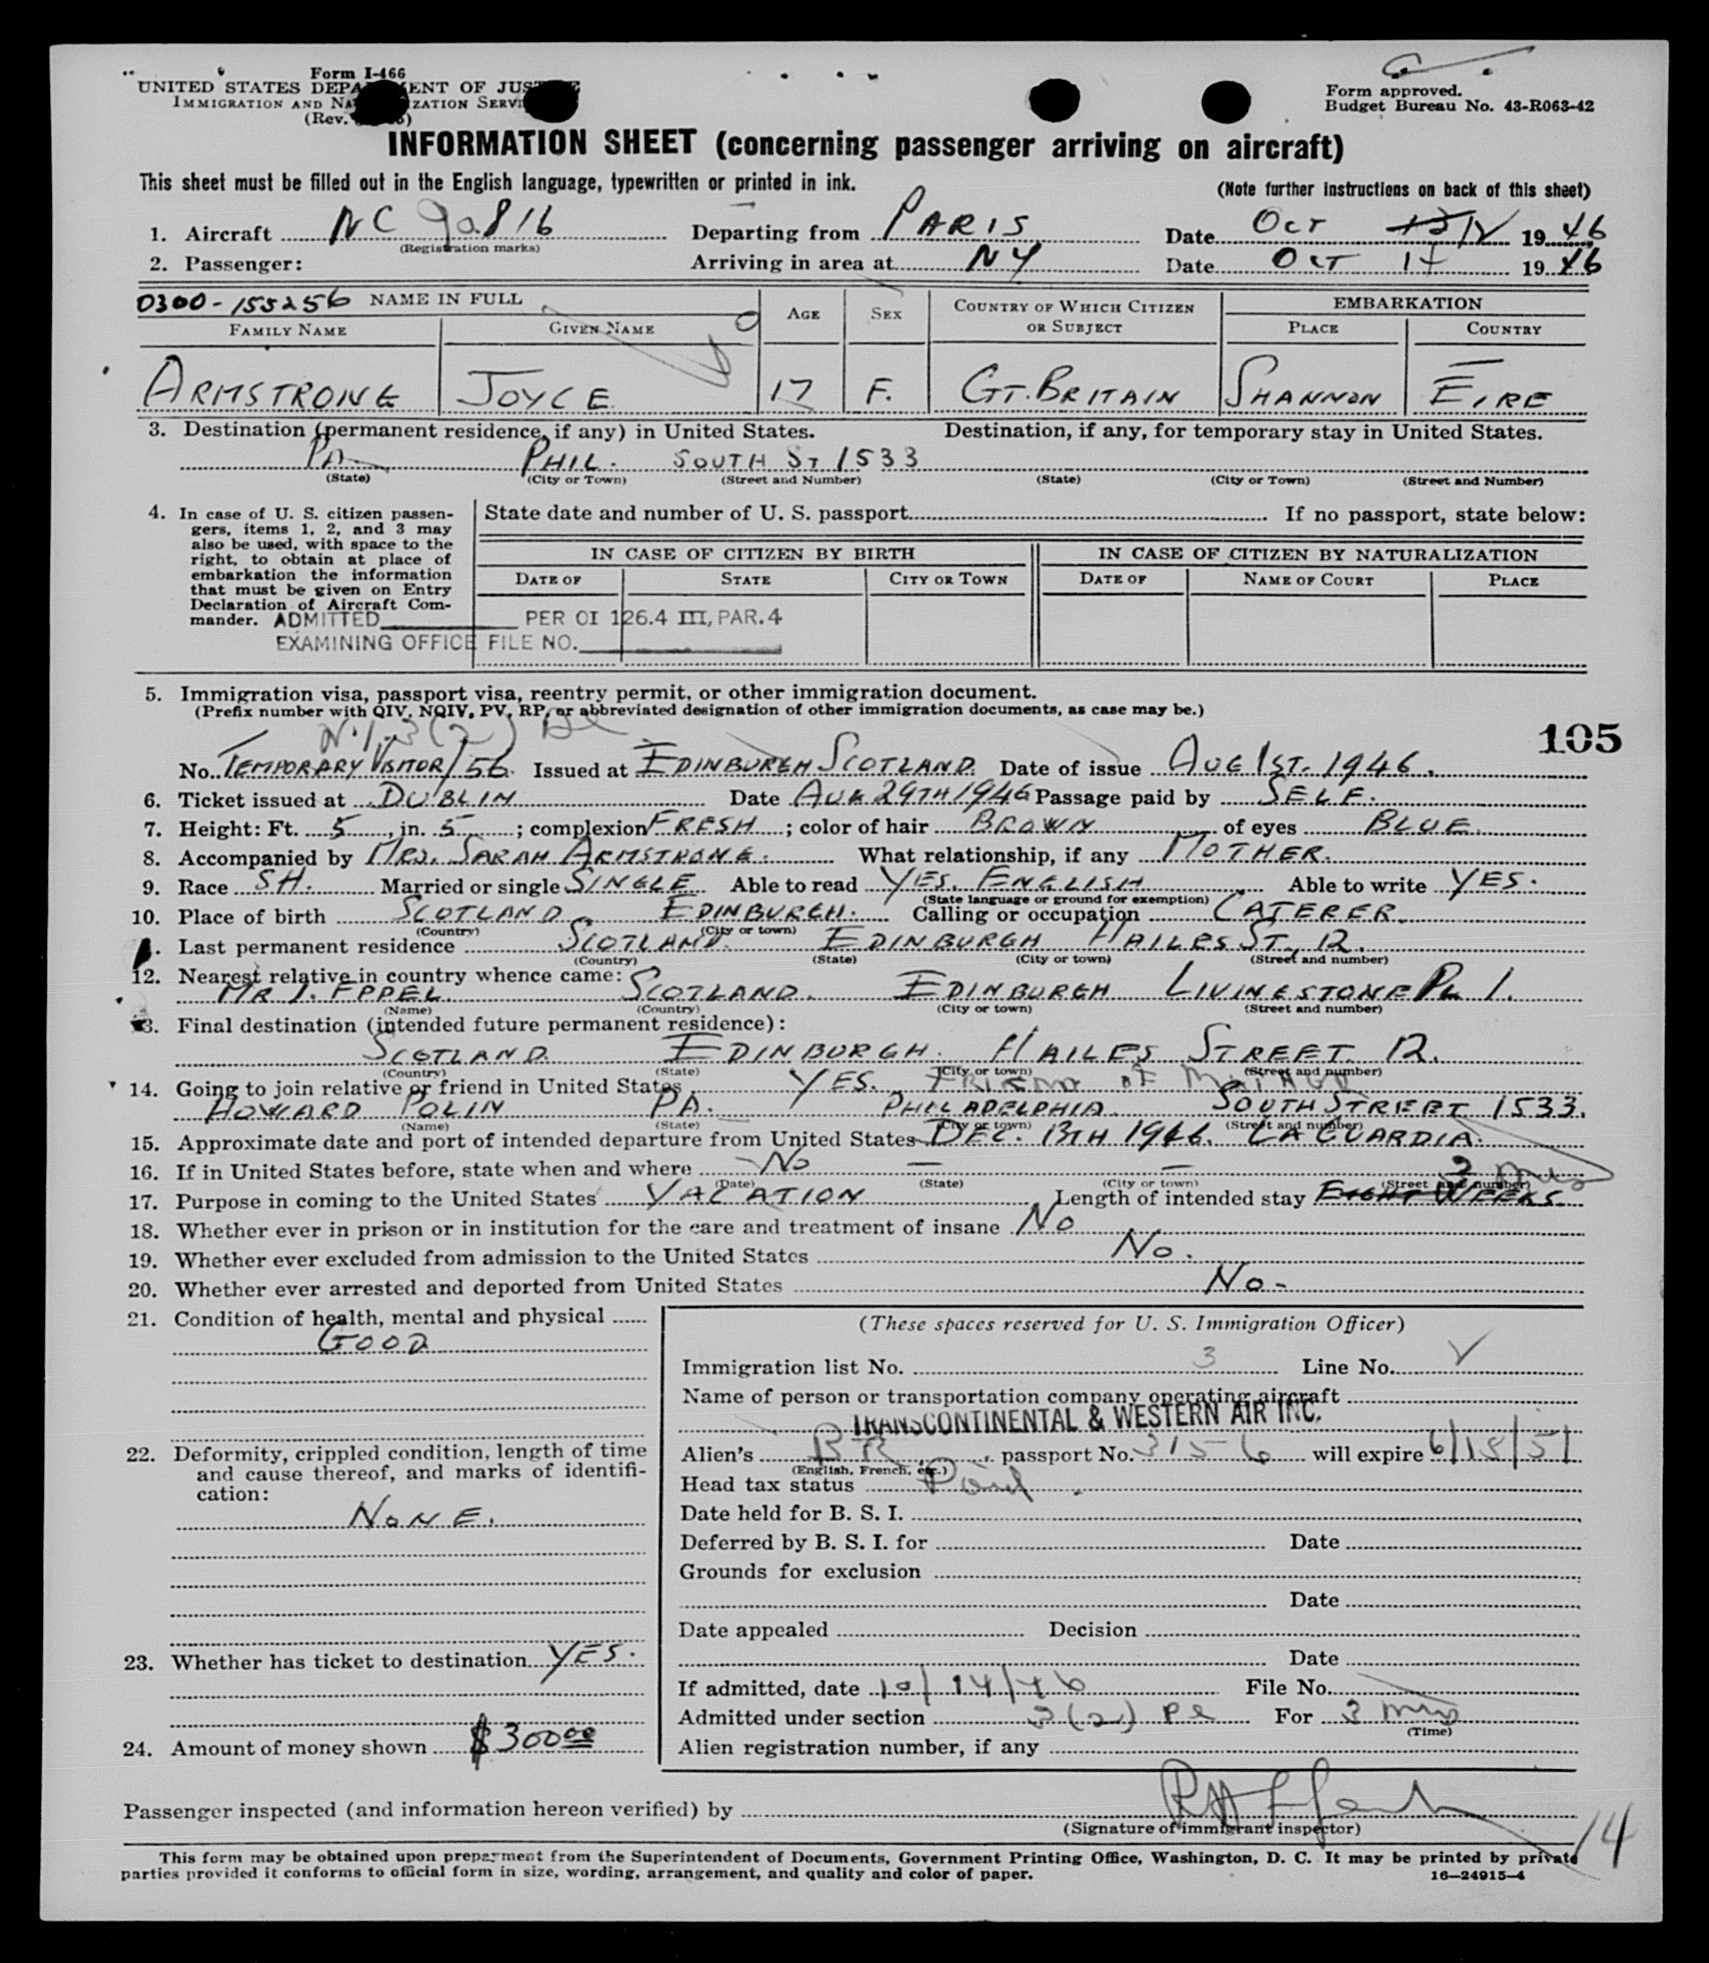 Form I-466
UNITED STATES DEPARTMENT OF JUSTICE
IMMIGRATION AND NATURALIZATION SERVICE
(Rev.
Form approved.
Budget Bureau No. 43-R063-42
INFORMATION SHEET (concerning passenger arriving on aircraft)
This sheet must be filled out in the English language, typewritten or printed in ink.
(Note further instructions on back of this sheet)
1. Aircraft NC 90816 Departing from PARIS Date OCT 12 1946
(Registration marks)
2. Passenger: Arriving in area at NY Date OCT 14 1946
0300-155256 NAME IN FULL AGE SEX COUNTRY OF WHICH CITIZEN OR SUBJECT EMBARKATION
FAMILY NAME GIVEN NAME PLACE COUNTRY
ARMSTRONG JOYCE 17 F. GT. BRITAIN SHANNON EIRE
3. Destination (permanent residence, if any) in United States. Destination, if any, for temporary stay in United States.
PA PHIL. SOUTH ST 1533
(State) (City or Town) (Street and Number) (State) (City or Town) (Street and Number)
4. In case of U. S. citizen passen-
gers, items 1, 2, and 3 may
also be used, with space to the
right, to obtain at place of
embarkation the information
that must be given on Entry
Declaration of Aircraft Com-
mander.
State date and number of U. S. passport If no passport, state below:
IN CASE OF CITIZEN BY BIRTH IN CASE OF CITIZEN BY NATURALIZATION
DATE OF STATE CITY OR TOWN DATE OF NAME OF COURT PLACE
ADMITTED PER OI 126.4 III, PAR. 4
EXAMINING OFFICE FILE NO.
5. Immigration visa, passport visa, reentry permit, or other immigration document.
(Prefix number with QIV, NQIV, PV, RP, or abbreviated designation of other immigration documents, as case may be.)
105
3(2)
No. TEMPORARY VISITOR/56. Issued at EDINBURGH SCOTLAND. Date of issue AUG 1ST. 1946.
6. Ticket issued at DUBLIN Date AUG 29TH 1946 Passage paid by SELF.
7. Height: Ft. 5, in. 5; complexion FRESH; color of hair BROWN of eyes BLUE.
8. Accompanied by MRS. SARAH ARMSTRONG. What relationship, if any MOTHER.
9. Race SH. Married or single SINGLE Able to read YES. ENGLISH Able to write YES.
(State language or ground for exemption)
10. Place of birth SCOTLAND EDINBURGH. Calling or occupation CATERER.
(Country) (City or town)
. Last permanent residence SCOTLAND. EDINBURGH HAILES ST., 12.
(Country) (State) (City or town) (Street and number)
12. Nearest relative in country whence came:
MR I. EPPEL. SCOTLAND. EDINBURGH LIVINGSTONE PL 1.
(Name) (Country) (City or town) (Street and number)
13. Final destination (intended future permanent residence):
SCOTLAND EDINBURGH. HAILES STREET 12.
(Country) (State) (City or town) (Street and number)
14. Going to join relative or friend in United States YES. FRIEND OF
HOWARD POLIN PA. PHILADELPHIA. SOUTH STREET 1533.
(Name) (State) (City or town) (Street and number)
15. Approximate date and port of intended departure from United States DEC. 13TH 1946. LA GUARDIA.
16. If in United States before, state when and where NO — —
(Date) (State) (City or town) (Street and number)
3 mos
17. Purpose in coming to the United States VACATION Length of intended stay EIGHT WEEKS.
18. Whether ever in prison or in institution for the care and treatment of insane NO
19. Whether ever excluded from admission to the United States NO.
20. Whether ever arrested and deported from United States NO-
21. Condition of health, mental and physical
GOOD
22. Deformity, crippled condition, length of time
and cause thereof, and marks of identifi-
cation:
NONE.
23. Whether has ticket to destination YES.
24. Amount of money shown $300 00
(These spaces reserved for U. S. Immigration Officer)
Immigration list No. 3 Line No.
Name of person or transportation company operating aircraft
TRANSCONTINENTAL & WESTERN AIR INC.
Alien's BR, passport No. 3156 will expire 6/15/51
(English, French, etc.)
Head tax status Paid
Date held for B. S. I.
Deferred by B. S. I. for Date
Grounds for exclusion
Date
Date appealed Decision
Date
If admitted, date 10/14/46 File No.
Admitted under section 3(2) For 3 mos
(Time)
Alien registration number, if any
Passenger inspected (and information hereon verified) by
(Signature of immigrant inspector)
14
This form may be obtained upon prepayment from the Superintendent of Documents, Government Printing Office, Washington, D. C. It may be printed by private
parties provided it conforms to official form in size, wording, arrangement, and quality and color of paper.
16—24915-4